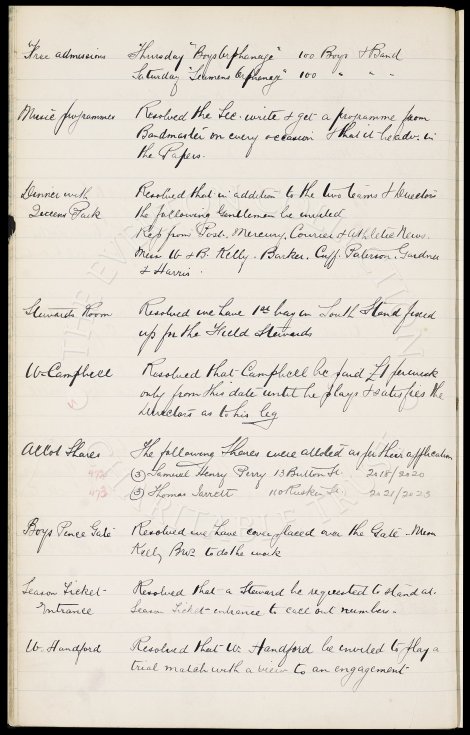 Free admissions Thursday "Boys Orphanage" 100 Boys & Band
Saturday "Seamens Orphanage" 100 " " "
Music programmes Resolved the Sec. write & get a programme from
Bandmaster on every occasion & that it be adv. in
the Papers.
Dinner with Resolved that in addition to the two teams & Directors
Queens Park the following Gentlemen be invited,
Rep from Post, Mercury, Courier & Athletic News.
Messrs W & B. Kelly. Barker. Cuff. Paterson. Gardner
& Harris.
Stewards Room Resolved we have 1st bay in South Stand fixed
up for the Field Stewards
W. Campbell Resolved that Campbell be paid £1 per week
only from this date until he plays & satisfies the
Directors as to his leg
Allot Shares The following Shares were alloted as per their application
472 (3) Samuel Henry Perry 13 Button St. 2018/2020
473 (3) Thomas Jarrett 110 Ruskin St. 2021/2023
Boys Pence Gate Resolved we have cover placed over the Gate. Messrs
Kelly Bros. to do the work
Season Ticket Resolved that a Steward be requested to stand at
Entrance Season Ticket entrance to call out number.
W. Handford Resolved that W. Handford be invited to play a
trial match with a view to an engagement